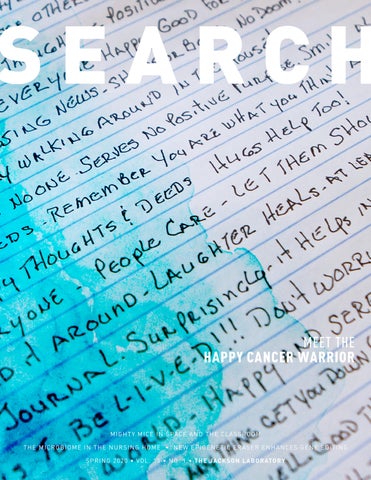 SEARCH
OTHERS
THOUGHTS POSITIV
EVERYONE HAPPY GOOD FOR
NO DOOM!
SING NEWS
WALKING AROUND IN THE HOUSE
NO ONE - SERVES NO POSITIVE PURPOSE SMIL
EDS - REMEMBER YOU ARE WHAT YOU
THOUGHTS & DEEDS HUGS HELP TOO!
RYONE - PEOPLE CARE - LET THEM SHOW
D IT AROUND - LAUGHTER HEALS - AT LEA
JOURNAL - SURPRISINGLY - IT HELPS IN
IS IN BE L-I-V-E-D!!! DON'T WORRY
HAPPY AND SERE
GET YOU DOWN
MEET THE
HAPPY CANCER WARRIOR
MIGHTY MICE IN SPACE AND THE CLASSROOM
THE MICROBIOME IN THE NURSING HOME • NEW EPIGENETIC ERASER ENHANCES GENE EDITING
SPRING 2020 • VOL. 13 • NO. 1 • THE JACKSON LABORATORY